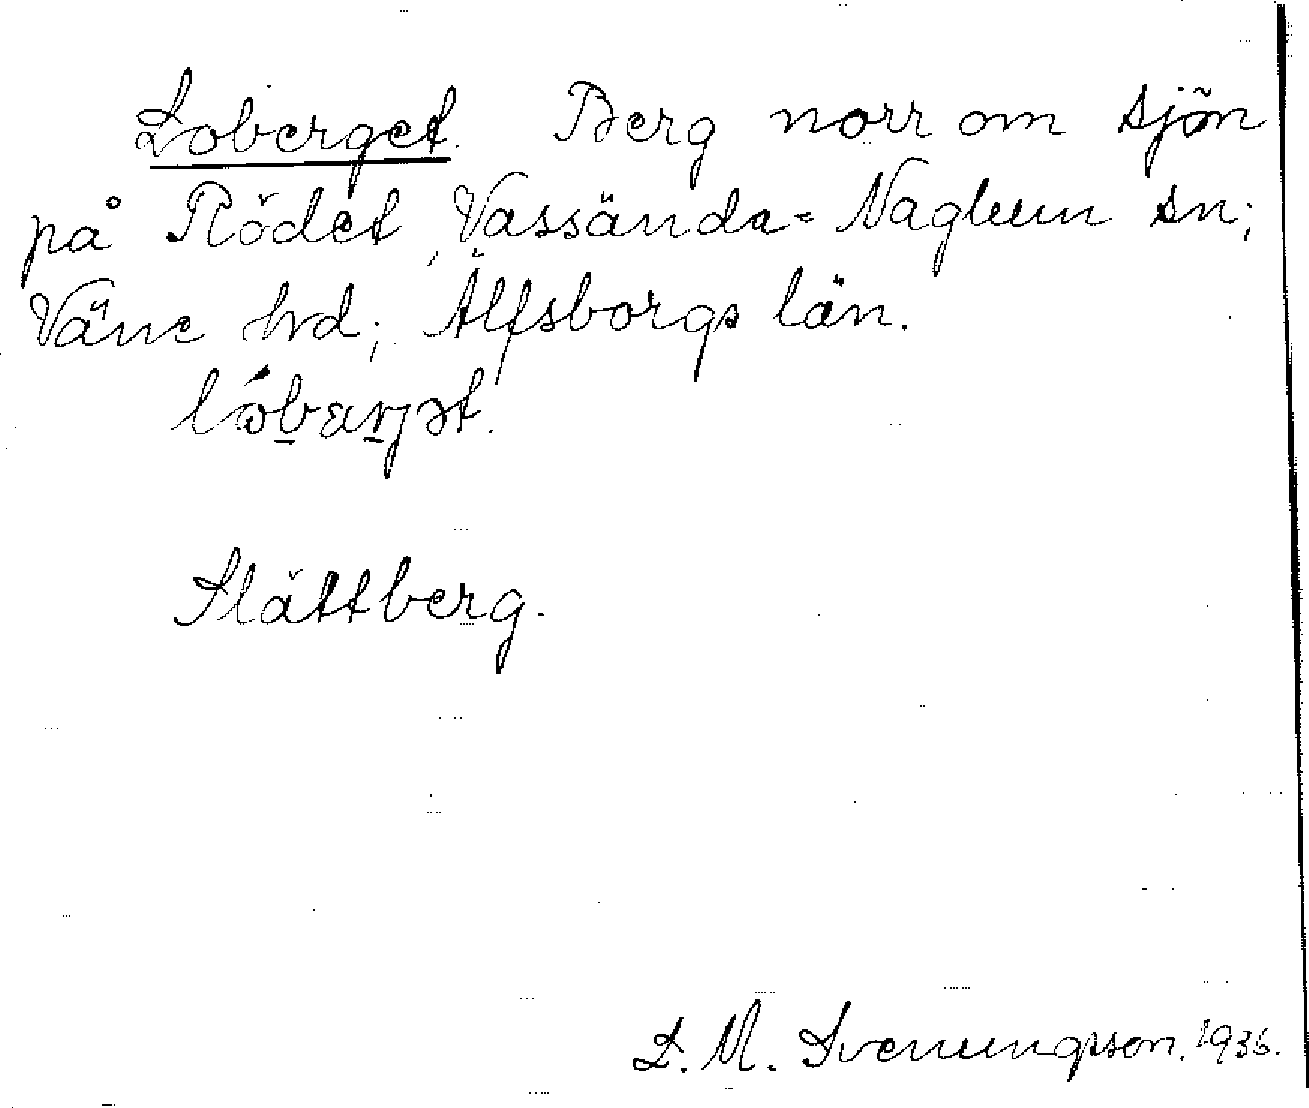 Loberget. Berg norr om sjön
på Rödet, Vassända-Naglum sn;
Väne hrd; Älfsborgs län.
Slättberg.
L. M. Svenungsson. 1936.